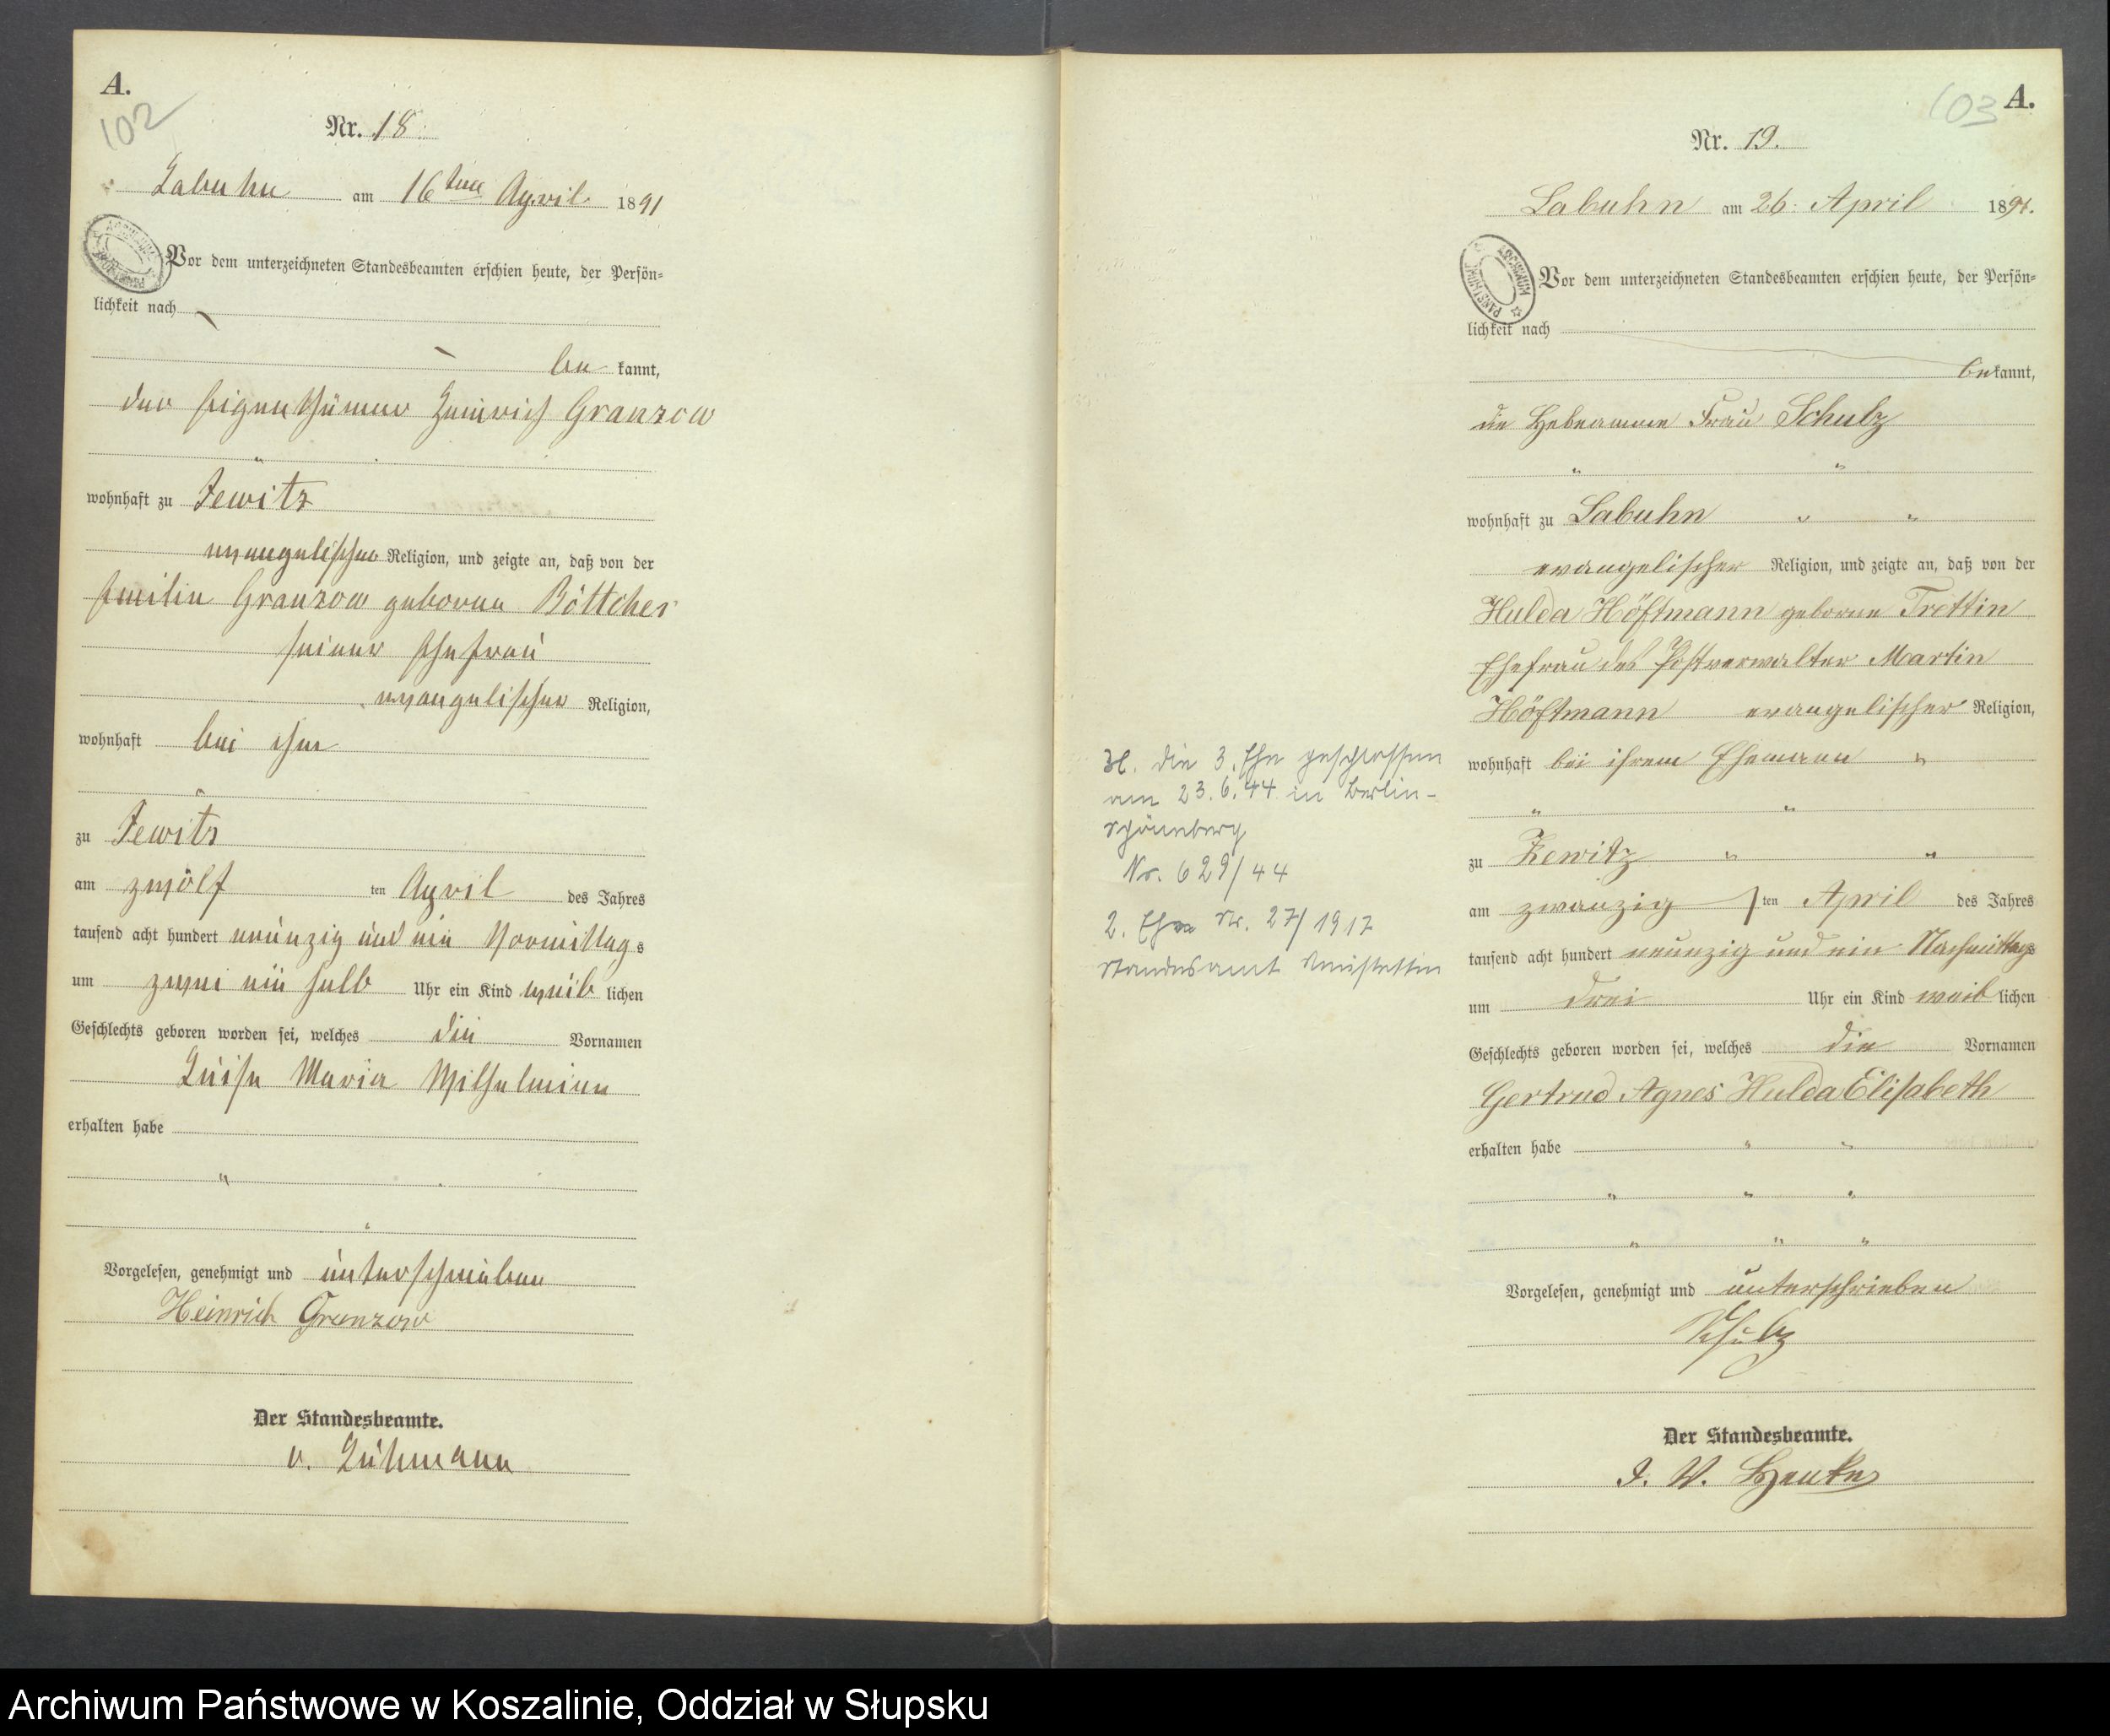 A.
102
Nr. 18.
Labuhn am 16ten April 1891
Vor dem unterzeichneten Standesbeamten erschien heute, der Persön-
lichkeit nach
be kannt,
der Eigenthümer Heinrich Granzow
wohnhaft zu Zewitz
evangelischer Religion, und zeigte an, daß von der
Emilie Granzow geborene Böttcher
seiner Ehefrau
evangelischer Religion,
wohnhaft bei ihm
zu Zewitz
am zwölf ten April des Jahres
tausend acht hundert neunzig und ein Vormittag s
um zwei ein halb Uhr ein Kind weib lichen
Geschlechts geboren worden sei, welches die Vornamen
Luise Maria Wilhelmine
erhalten habe
Vorgelesen, genehmigt und unterschrieben
Heinrich Granzow
Der Standesbeamte.
v.
103 A.
Nr. 19.
Labuhn am 26. April 1891.
Vor dem unterzeichneten Standesbeamten erschien heute, der Persön-
lichkeit nach
bekannt,
die Hebeamme Frau Schulz
wohnhaft zu Labuhn
evangelischer Religion, und zeigte an, daß von der
Hulda Höftmann geborne Trettin
Ehefrau des Postverwalter Martin
Höftmann evangelischer Religion,
wohnhaft bei ihrem Ehemann
zu Zewitz
am zwanzig ten April des Jahres
tausend acht hundert neunzig und ein Nachmittags
um drei Uhr ein Kind weib lichen
Geschlechts geboren worden sei, welches die Vornamen
Gertrud Agnes Hulda Elisabeth
erhalten habe
Vorgelesen, genehmigt und unterschrieben
Schulz
Der Standesbeamte.
J. V.
die 3. Ehe geschlossen
am 23.6.44 in Berlin-
Schöneberg
Nr. 629/44
2. Ehe Nr. 27/1917
Standesamt Neustettin
Archiwum Państwowe w Koszalinie, Oddział w Słupsku